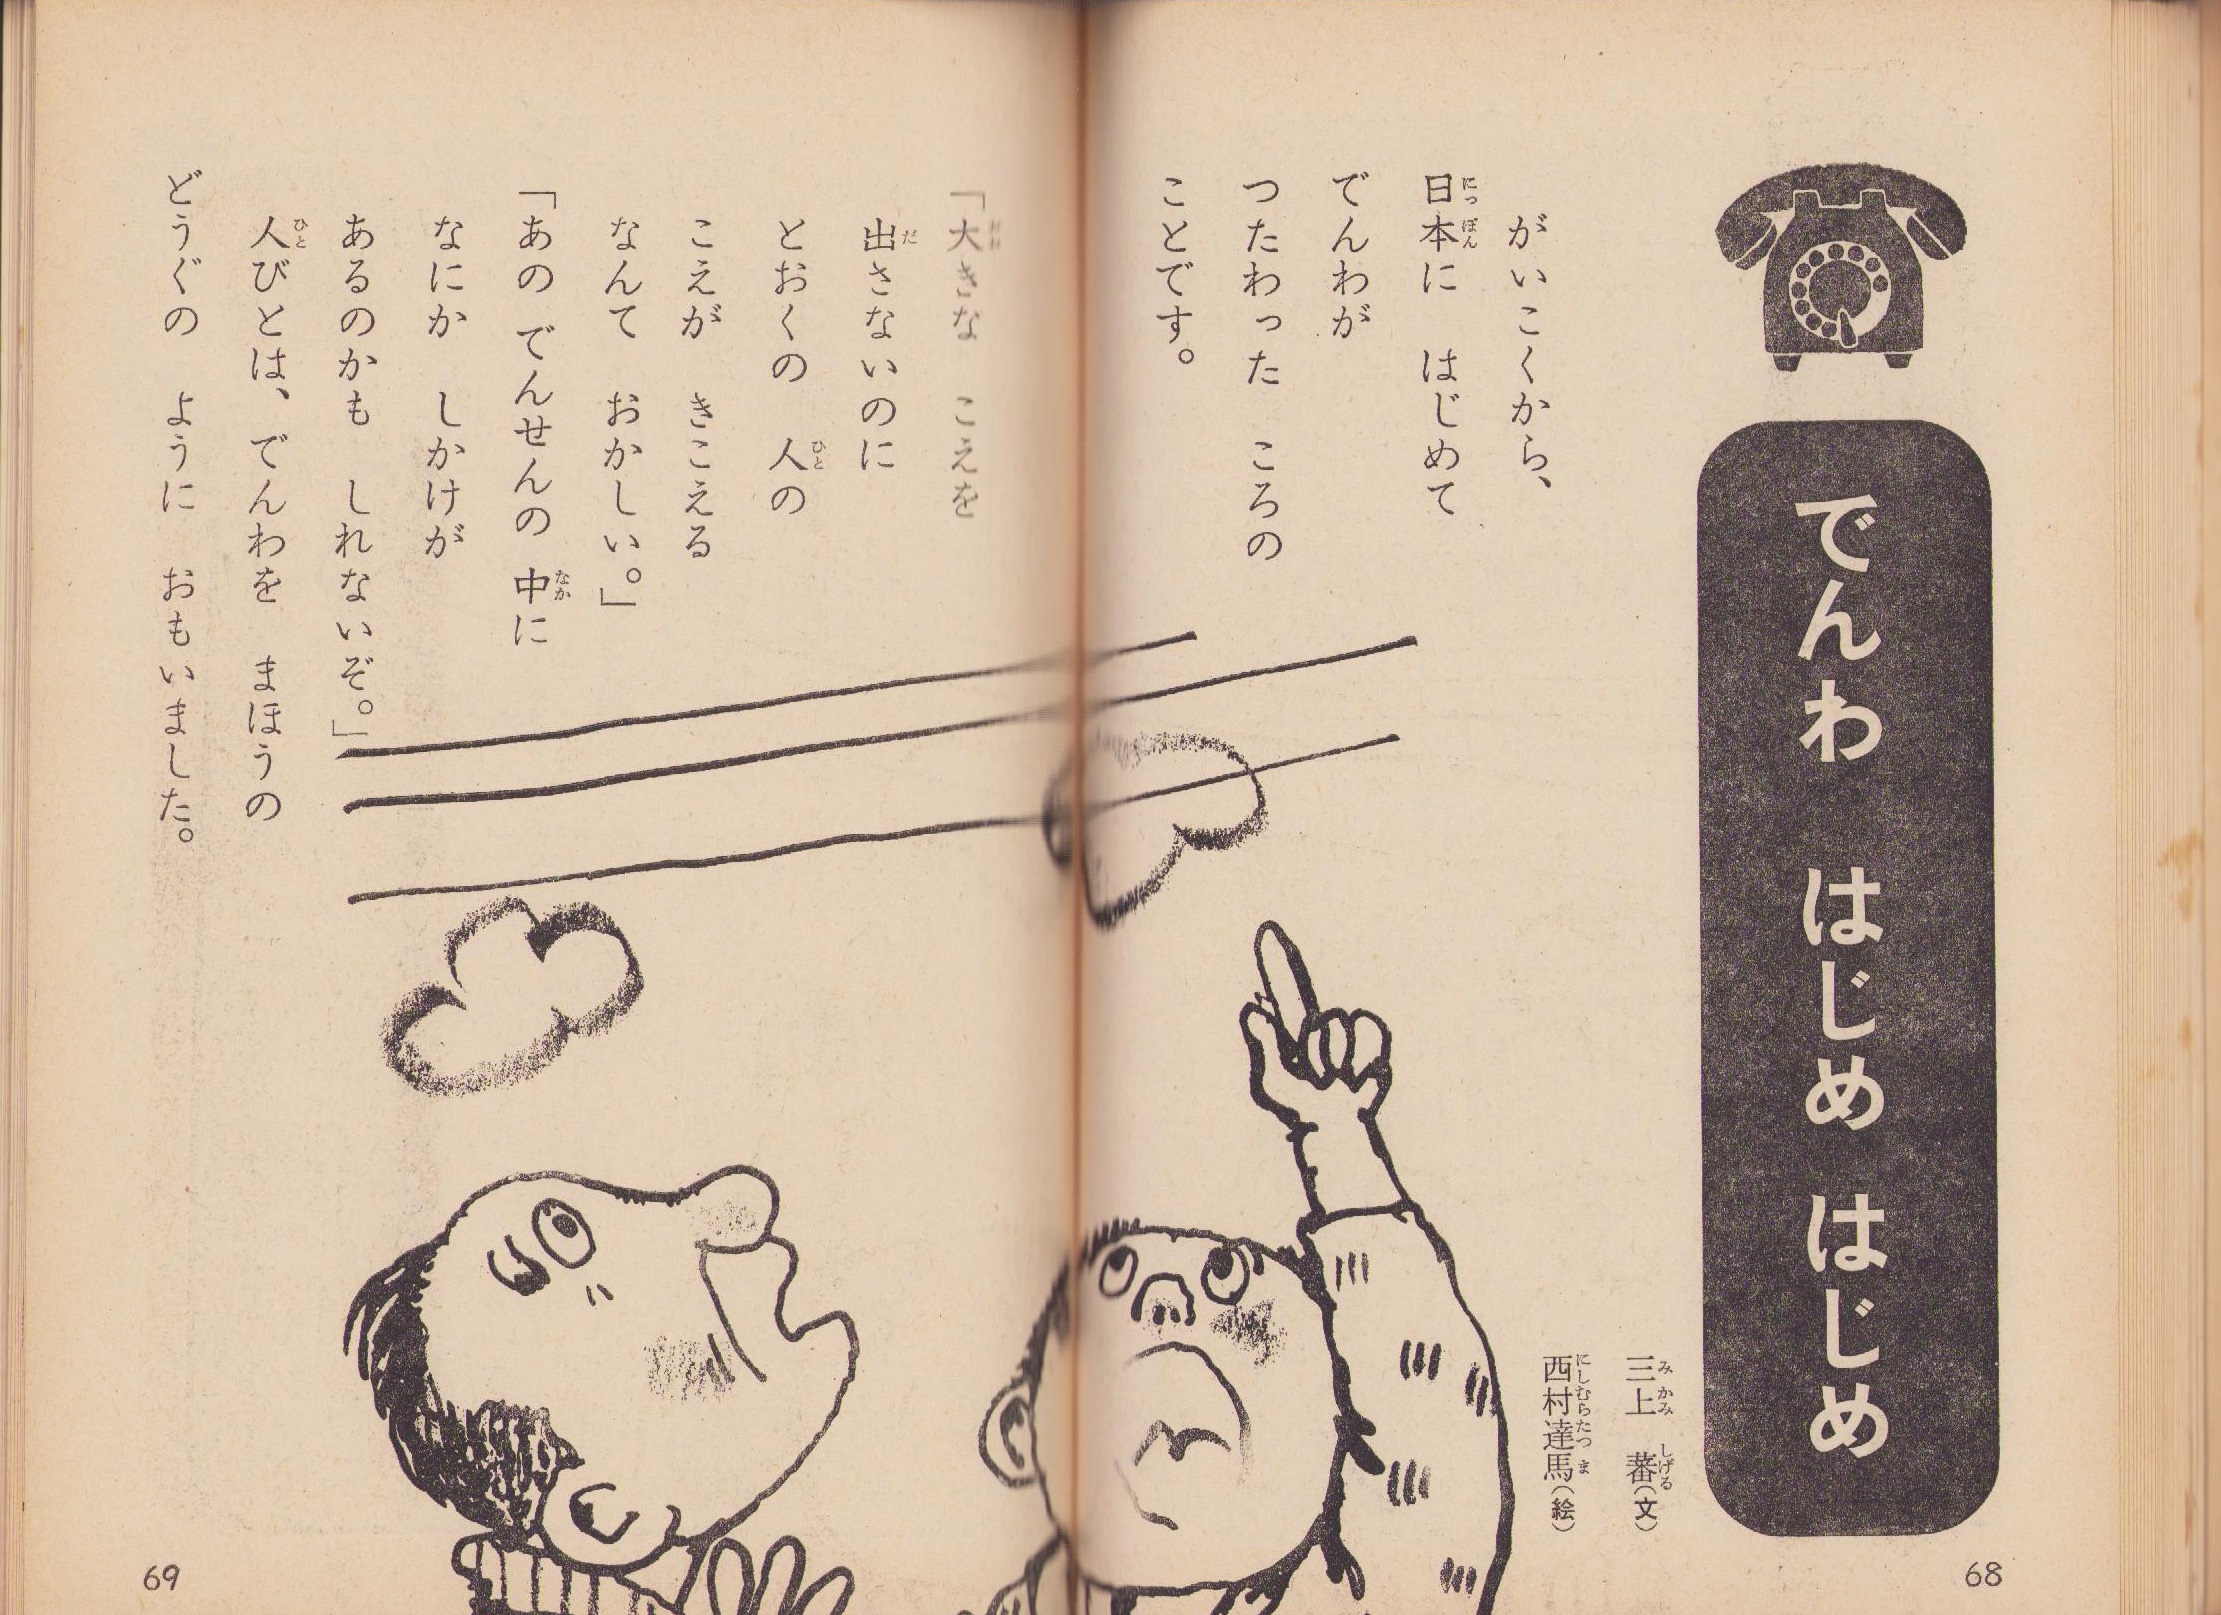 でんわ はじめ はじめ
三上 蕃(文)
西村達馬(絵)
がいこくから、
日本に はじめて
でんわが
つたわった ころの
ことです。
「大きな こえを
出さないのに
とおくの 人の
こえが きこえる
なんて おかしい。」
「あの でんせんの 中に
なにか しかけが
あるのかも しれないぞ。」
人びとは、でんわを まほうの
どうぐの ように おもいました。
68
69